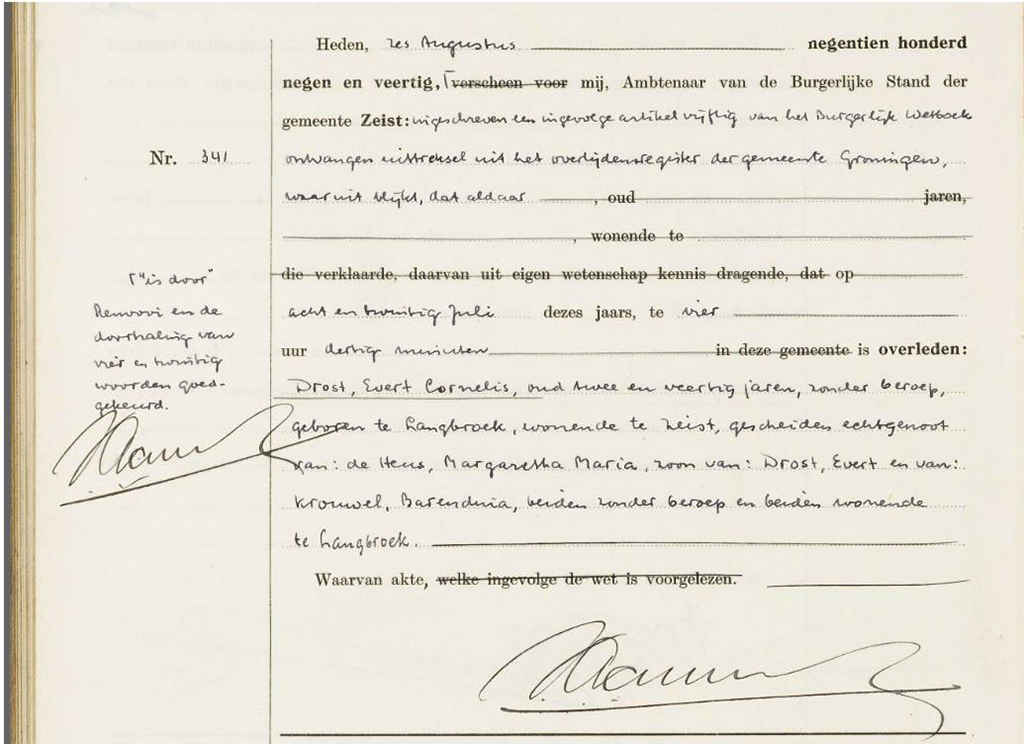 Heden, zes Augustus negentien honderd
negen en veertig, ⌈verscheen voor mij, Ambtenaar van de Burgerlijke Stand der
gemeente Zeist: ingeschreven een ingevolge artikel vijftig van het Burgerlijk Wetboek
Nr. 341
ontvangen uittreksel uit het overlijdensregister der gemeente Groningen,
waaruit blijkt, dat aldaar , oud jaren,
, wonende te
die verklaarde, daarvan uit eigen wetenschap kennis dragende, dat op
⌈"is door"
Renvooi en de
doorhaling van
vier en twintig
woorden goed-
gekeurd.
acht en twintig Juli dezes jaars, te vier
uur dertig minuten in deze gemeente is overleden:
Drost, Evert Cornelis, oud twee en veertig jaren, zonder beroep,
geboren te Langbroek, wonende te Zeist, gescheiden echtgenoot
van: de Heus, Margaretha Maria, zoon van: Drost, Evert en van:
Krouwel, Barendina, beiden zonder beroep en beiden wonende
te Langbroek.
Waarvan akte, welke ingevolge de wet is voorgelezen.